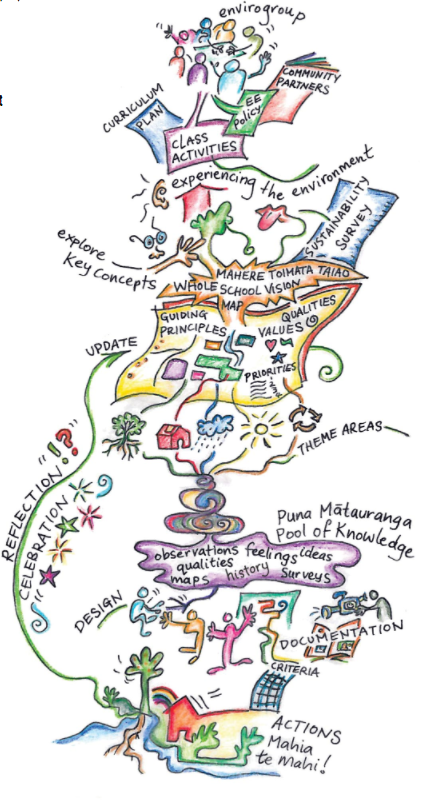 envirogroup
COMMUNITY
PARTNERS
EE
POLICY
CURRICULUM
PLAN
CLASS
ACTIVITIES
experiencing the environment
SUSTAINABILITY
SURVEY
explore
Key Concepts
MAHERE TOIMATA TAIAO
WHOLE SCHOOL VISION
MAP
GUIDING
PRINCIPLES
QUALITIES
VALUES
PRIORITIES
1
2
3
UPDATE
THEME AREAS
"!?"
REFLECTION
CELEBRATION
Puna Mātauranga
Pool of Knowledge
observations feelings ideas
qualities
maps history surveys
DESIGN
DOCUMENTATION
CRITERIA
ACTIONS
Mahia
te mahi!